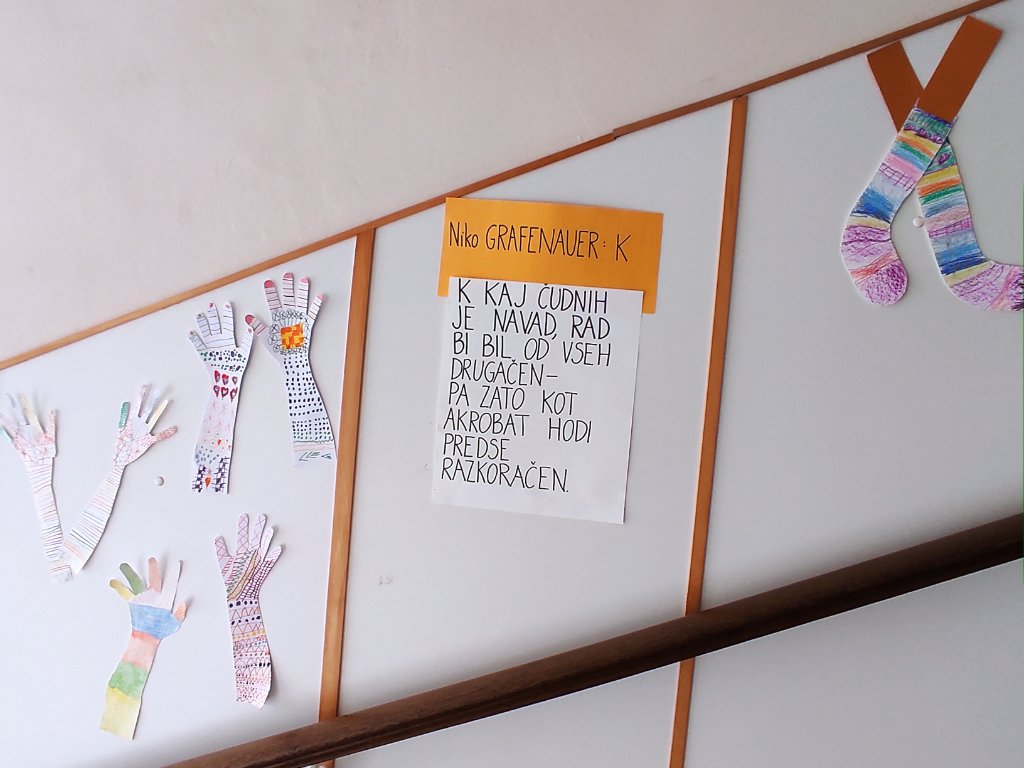 Niko GRAFENAUER: K
K KAJ ČUDNIH
JE NAVAD, RAD
BI BIL OD VSEH
DRUGAČEN–
PA ZATO KOT
AKROBAT HODI
PREDSE
RAZKORAČEN.